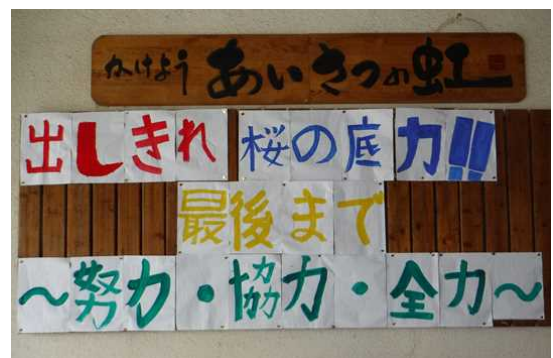 かけよう あいさつの虹
出しきれ 桜の底力!!
最後まで
～努力・協力・全力～